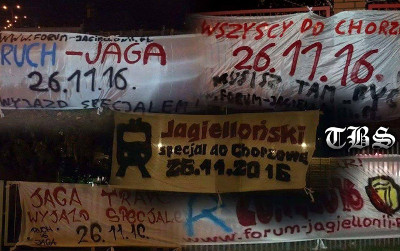 WWW.FORUM-JAGIELLONII.PL
RUCH-JAGA
26.11.16.
WYJAZD SPECJALEM!
WSZYSCY DO CHORZ
26.11.16.
MUSISZ TAM BYĆ
W.FORUM-JAGIELL
Jagielloński
specjal do Chorzowa
26.11.2016
TBS
JAGA TRA
WYJAZD SPECJALE
26.11.16.
www.forum-jagiellonii.pl